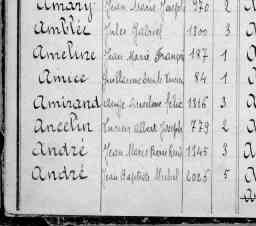 Amary Jean Marie Joseph 970 2
Amblée Jules Gabriel 1800 3
Ameline Jean Marie François 187 1
Amice Guillaume 84 1
Amirand 1816 3
Ancelin Lucien Albert Joseph 779 2
André Jean Marie Pierre 1345 3
André Jean Baptiste Michel 2025 5